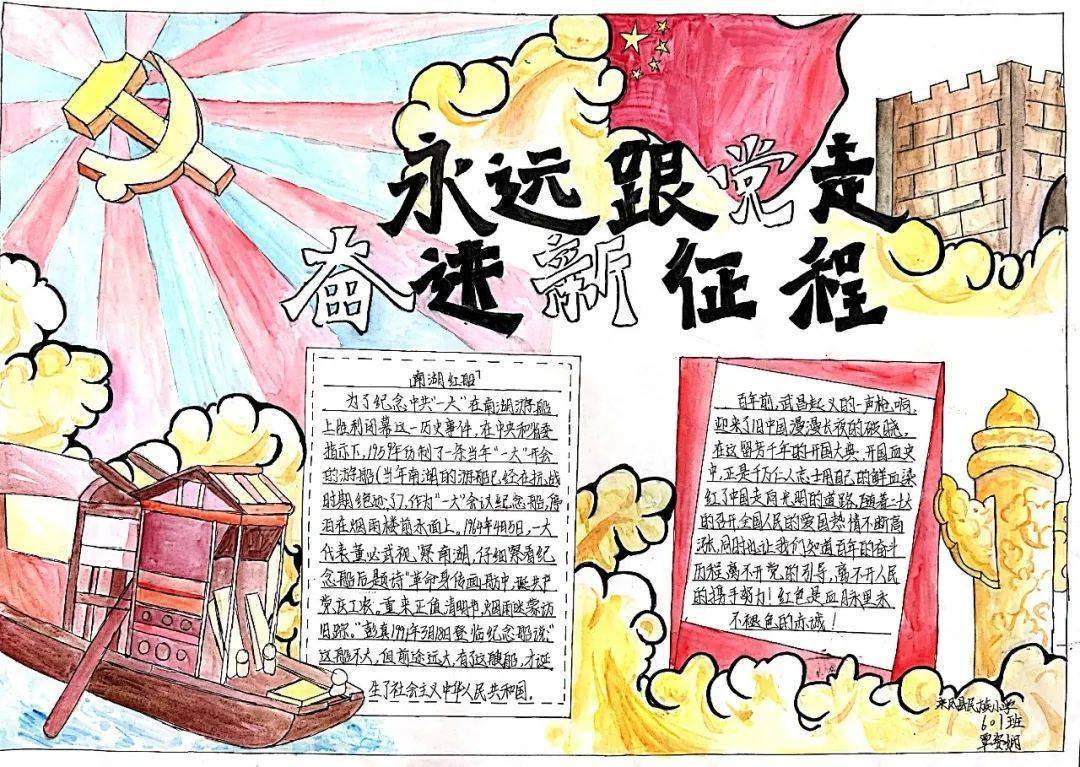 永远跟党走
奋进新征程
南湖红船
为了纪念中共"一大"在南湖游船
上胜利闭幕这一历史事件,在中央和省委
指示下,1959年仿制了一条当年"一大"开会
的游船(当年南湖的游船已经在抗战
时期绝迹了,作为"一大"会议纪念船,停
泊在烟雨楼前水面上。1964年4月5日,一大
代表董必武视察南湖,仔细察看纪
念船后题诗"革命声传画舫中 诞共产
党庆工农 重来正值清明节 烟雨迷蒙访
旧踪。"彭真1991年3月18日登临纪念船说:"
这船不大,但前途远大,有了这艘船,才诞
生了社会主义中华人民共和国。
百年前,武昌起义的一声枪响,
迎来了旧中国漫漫长夜的破晓,
在这留芳千年的开国大典、开国血史
中,正是千万仁人志士用自己的鲜血染
红了中国走向光明的道路,随着二十大
的召开,全国人民的爱国热情不断高
涨,同时也让我们知道百年的奋斗
历程,离不开党的引导,离不开人民
的携手努力!红色是血脉里永
不褪色的赤诚!
来凤县民族小学
601班
覃